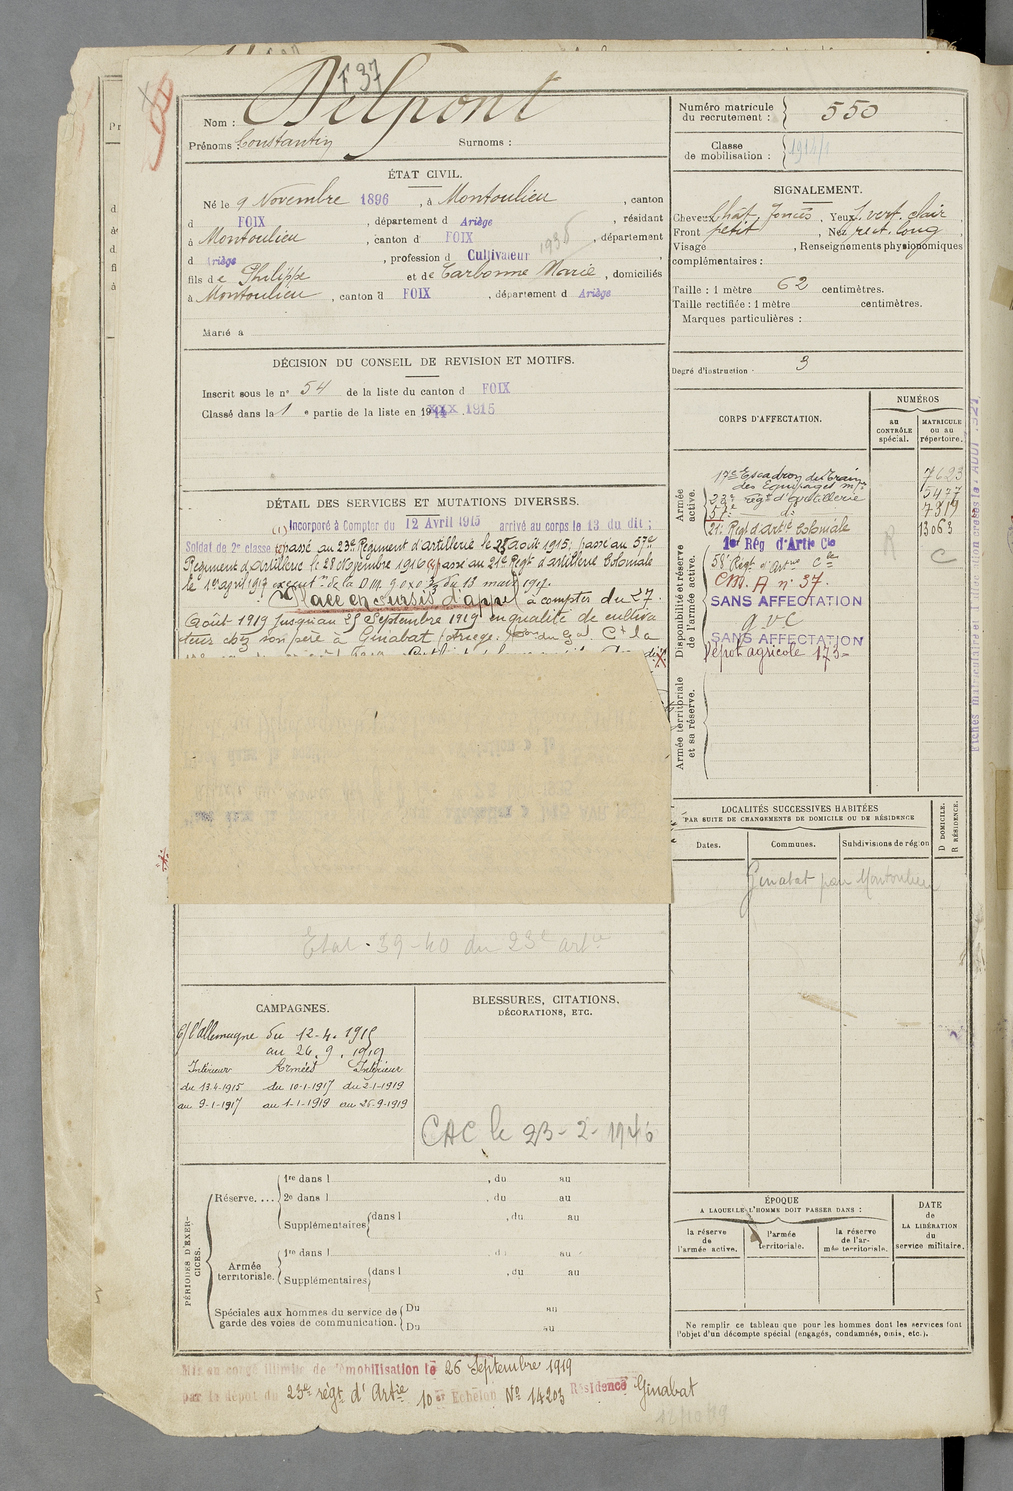 F 37
Nom : Delpont
Prénoms : Constantin Surnoms :
Numéro matricule du recrutement : 550
Classe de mobilisation :
ÉTAT CIVIL.
Né le 9 Novembre 1896, à Montoulieu, canton
d FOIX, département d Ariège, résidant
à Montoulieu, canton d FOIX, département
d Ariège, profession d Cultivateur
fils de Philippe et de Carbonne Marie, domiciliés
à Montoulieu, canton d FOIX, département d Ariège
Marié à
SIGNALEMENT.
Cheveux chât. foncés, Yeux vert clair,
Front petit, Nez rect. long,
Visage , Renseignements physionomiques
complémentaires :
Taille : 1 mètre 62 centimètres.
Taille rectifiée : 1 mètre centimètres.
Marques particulières :
Degré d'instruction 3
DÉCISION DU CONSEIL DE REVISION ET MOTIFS.
Inscrit sous le n° 54 de la liste du canton d FOIX
Classé dans la 1 e partie de la liste en 1915
DÉTAIL DES SERVICES ET MUTATIONS DIVERSES.
(1) Incorporé à Compter du 12 Avril 1915 arrivé au corps le 13 du dit ;
Soldat de 2e classe passé au 23e Régiment d'artillerie le 28 août 1915; passé au 57e
Régiment d'Artillerie le 28 Novembre 1916 passé au 21e Régt d'artillerie Coloniale
le 1er avril 1917 du 13 mars 1917.
Placé en sursis d'appel à compter du 27
Août 1919 jusqu'au 25 Septembre 1919 en qualité de cultiva
teur chez son père à Ginabat (Ariège).
CORPS D'AFFECTATION.
NUMÉROS
au CONTRÔLE spécial.
MATRICULE ou au répertoire.
Armée active.
17e Escadron du Train
des Equipages mre 7623
23e régt d'artillerie 5477
57e do 7819
21e Régt d'Artie Coloniale 13063
Disponibilité et réserve de l'armée active.
1er Rég d'Artie Cle
58e Régt d'Artie Cle
CM. A n° 37.
SANS AFFECTATION
GVC
SANS AFFECTATION
Dépôt agricole 173
R
C
Armée territoriale et sa réserve.
LOCALITÉS SUCCESSIVES HABITÉES
PAR SUITE DE CHANGEMENTS DE DOMICILE OU DE RÉSIDENCE
Dates. Communes. Subdivisions de région
D DOMICILE.
R RÉSIDENCE.
Ginabat par Montoulieu
Etat 39-40 du 23e artie
CAMPAGNES.
C/ l'allemagne du 12-4. 1915
au 26. 9. 1919
Intérieur Armées Intérieur
du 13.4-1915 du 10-1-1917 du 2-1-1919
au 9-1-1917 au 1-1-1919 au 26-9-1919
BLESSURES, CITATIONS,
DÉCORATIONS, ETC.
CAC le 23-2-1946
PÉRIODES D'EXERCICES.
Réserve.... 1re dans l , du au
2e dans l , du au
Supplémentaires dans l , du au
Armée territoriale. 1re dans l , du au
Supplémentaires dans l , du au
Spéciales aux hommes du service de Du au
garde des voies de communication. Du au
ÉPOQUE
A LAQUELLE L'HOMME DOIT PASSER DANS :
la réserve de l'armée active.
l'armée territoriale.
la réserve de l'armée territoriale.
DATE de LA LIBÉRATION du service militaire.
Ne remplir ce tableau que pour les hommes dont les services font
l'objet d'un décompte spécial (engagés, condamnés, omis, etc.).
Mis au congé illimité de démobilisation le 26 Septembre 1919
par le dépôt du 23e régt d'Artie 10e Echelon No 14203 Résidence Ginabat